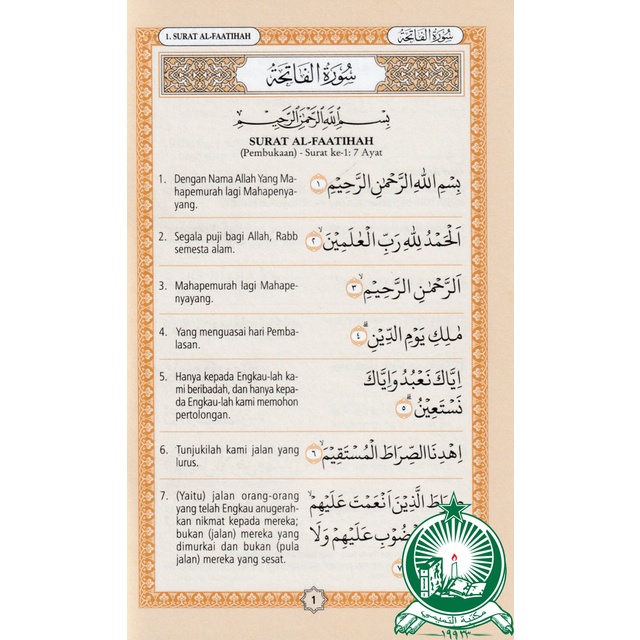 1. SURAT AL-FAATIHAH
سُوْرَةُ الْفَاتِحَةِ
سُوْرَةُ الْفَاتِحَةِ
بِسْمِ اللّٰهِ الرَّحْمٰنِ الرَّحِيْمِ
SURAT AL-FAATIHAH
(Pembukaan) - Surat ke-1: 7 Ayat
1. Dengan Nama Allah Yang Ma-
hapemurah lagi Mahapenya-
yang.
بِسْمِ اللّٰهِ الرَّحْمٰنِ الرَّحِيْمِ ١
2. Segala puji bagi Allah, Rabb
semesta alam.
اَلْحَمْدُ لِلّٰهِ رَبِّ الْعٰلَمِيْنَۙ ٢
3. Mahapemurah lagi Mahape-
nyayang.
اَلرَّحْمٰنِ الرَّحِيْمِۙ ٣
4. Yang menguasai hari Pemba-
lasan.
مٰلِكِ يَوْمِ الدِّيْنِۗ ٤
5. Hanya kepada Engkau-lah ka-
mi beribadah, dan hanya kepa-
da Engkau-lah kami memohon
pertolongan.
اِيَّاكَ نَعْبُدُ وَاِيَّاكَ
نَسْتَعِيْنُۗ ٥
6. Tunjukilah kami jalan yang
lurus.
اِهْدِنَا الصِّرَاطَ الْمُسْتَقِيْمَۙ ٦
7. (Yaitu) jalan orang-orang
yang telah Engkau anugerah-
kan nikmat kepada mereka;
bukan (jalan) mereka yang
dimurkai dan bukan (pula
jalan) mereka yang sesat.
الَّذِيْنَ اَنْعَمْتَ عَلَيْهِمْ
عَلَيْهِمْ وَلَا
٧
1
مكتبة القديمي
١٩٩٣